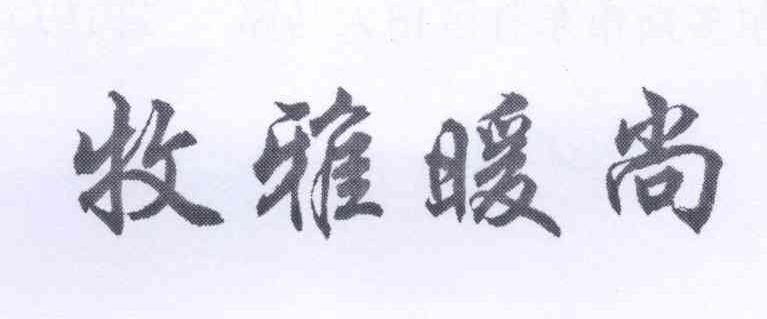 牧雅暖尚